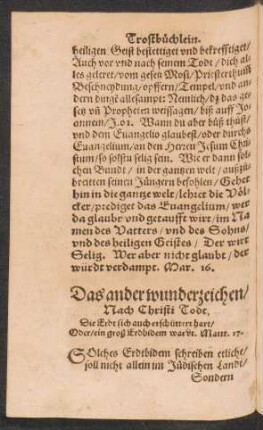 Trostbüchlein.
heiligen Geist bestettiget vnd bekrefftiget/
Auch vor vnd nach seinem Todt/ dich al-
les geleret/ vom gesetz Mosi/ Priesterthumb
Beschneydung/ opffern/ Tempel/ vnd an-
dern dingē allesampt: Nemlich/ dz das ge-
setz vñ Propheten weissagen/ biß auff Jo-
annem/ Wann du aber büß thust/
vnd dem Euangelio glaubest/ oder durchs
Euangelium/ an den Herren Jesum Chri-
stum/ so solstu selig sein. Wie er dann sol-
chen Bundt/ in der gantzen welt/ außzů-
breitten seinen Jüngern befohlen/ Gehet
hin in die gantze welt/ lehret die Völ-
cker/ prediget das Euangelium/ wer
da glaubt vnd getaufft wirt/ im Na-
men des Vatters/ vnd des Sohns/
vnd des heiligen Geistes/ Der wirt
Selig. Wer aber nicht glaubt/ der
wurdt verdampt. Mar. 16.
Das ander wunderzeichen/
Nach Christi Todt,
Die Erdt sich auch erschüttert hart/
Oder/ ein groß Erdbidem wardt. Matt. 27.
SOlches Erdbidem schreiben etlicht/
soll nicht allein im Jüdischen Landt/
Sondern